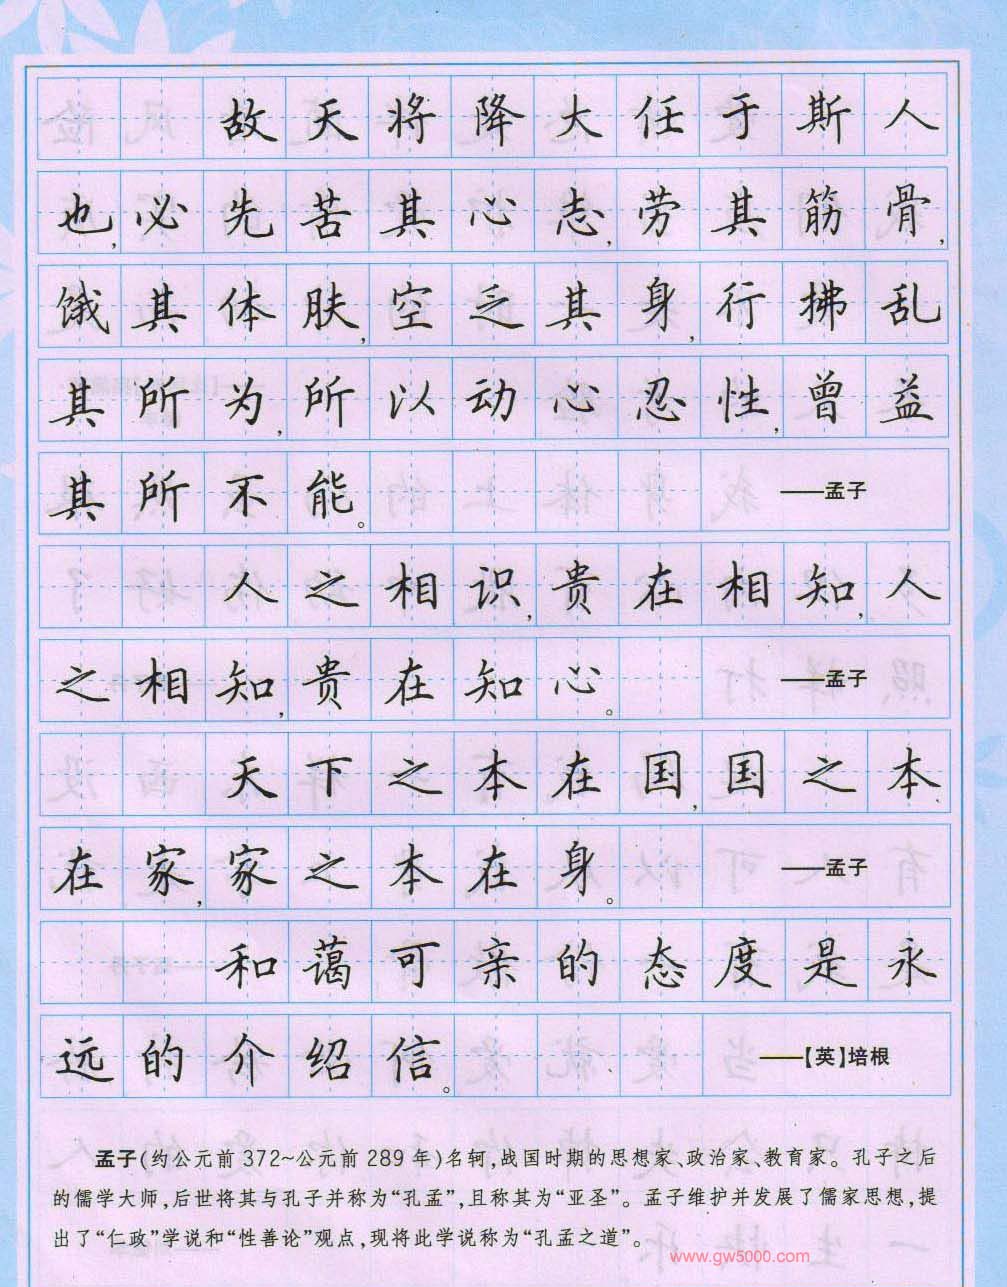 故天将降大任于斯人
也,必先苦其心志,劳其筋骨,
饿其体肤,空乏其身,行拂乱
其所为,所以动心忍性,曾益
其所不能。——孟子
人之相识,贵在相知,人
之相知,贵在知心。——孟子
天下之本在国,国之本
在家,家之本在身。——孟子
和蔼可亲的态度是永
远的介绍信。——【英】培根
孟子(约公元前372~公元前289年)名轲,战国时期的思想家、政治家、教育家。孔子之后
的儒学大师,后世将其与孔子并称为“孔孟”,且称其为“亚圣”。孟子维护并发展了儒家思想,提
出了“仁政”学说和“性善论”观点,现将此学说称为“孔孟之道”。
www.gw5000.com